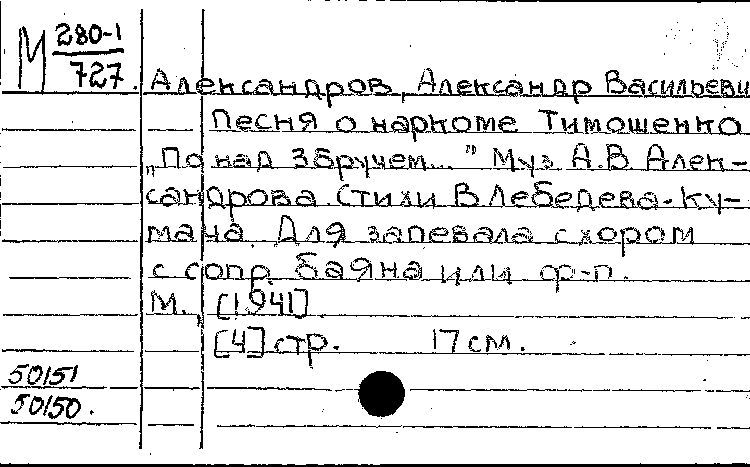 М 280-1
727.
Александров, Александр Васильеви
Песня о наркоме Тимошенко
„По над Збручем..." Муз. А.В. Алек-
сандрова. Стихи В. Лебедева-Ку-
мача. Для запевала с хором
с сопр. баяна или ф-п.
М., [1941].
[4] стр. 17 см.
50151
50150.